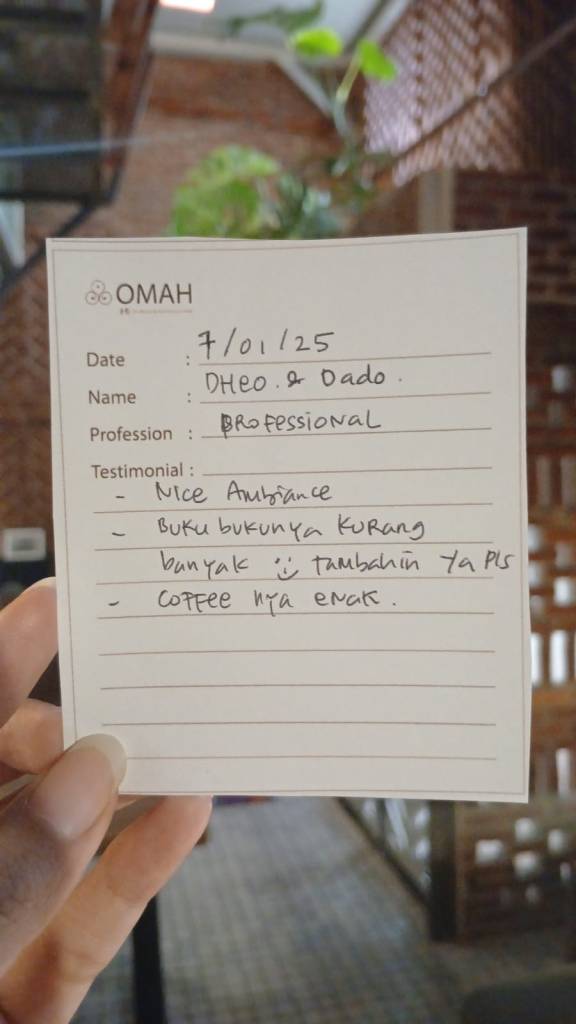 OMAH
Date : 7/01/25
Name : DHEO . & Dado .
Profession : PROFESSIONAL
Testimonial :
- NICE AMBIANCE
- BUKU BUKUNYA KURANG
banyak :) tambahin ya pls
- COFFEE nya enak .